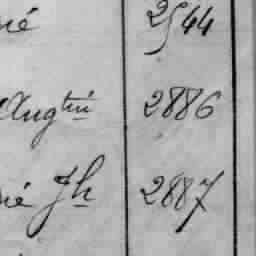 né 2544
Augtin 2886
né Jh 2887